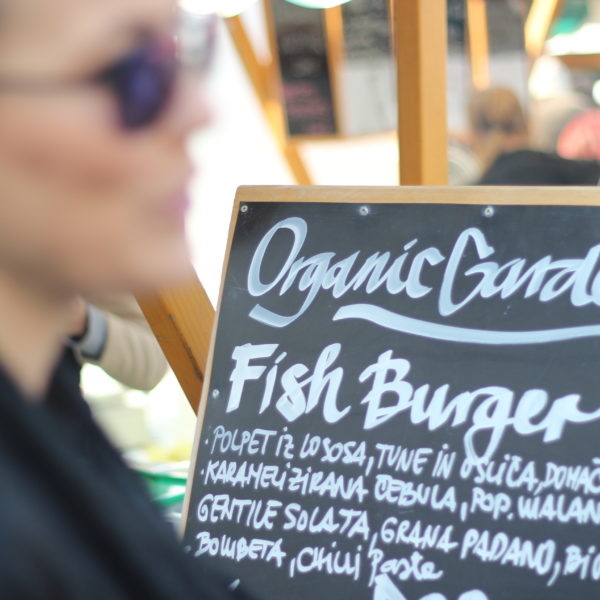 Organic Garde
Fish Burger
· POLPET iZ LOSOSA, TUNE IN OSLIČA, DOMAČ
· KARAMELiZIRANA ČEBULA, POP. WALAN
GENTILE SOLATA, GRANA PADANO, BiO
BOMBETA, CHiLi Paste